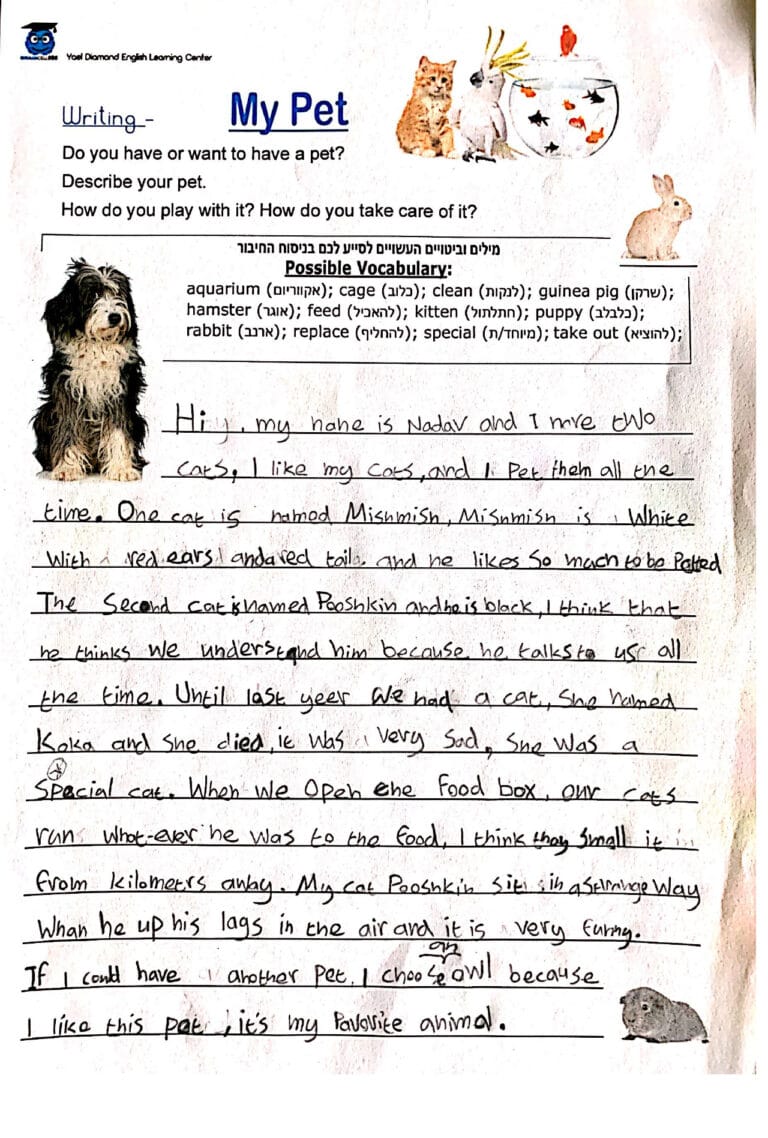 Yael Diamond English Learning Center
Writing -
My Pet
Do you have or want to have a pet?
Describe your pet.
How do you play with it? How do you take care of it?
מילים וביטויים העשויים לסייע לכם בניסוח החיבור
Possible Vocabulary:
aquarium (אקווריום); cage (כלוב); clean (לנקות); guinea pig (שרקן);
hamster (אוגר); feed (להאכיל); kitten (חתלתול); puppy (כלבלב);
rabbit (ארנב); replace (להחליף); special (מיוחד/ת); take out (להוציא);
Hi, my name is Nadav and I have two
cats, I like my cats, and I Pet them all the
time. One cat is named Mishmish, Mishmish is White
With red ears and a red tail and he likes So much to be Petted
The Second cat is named Pooshkin and he is black, I think that
he thinks We understand him because he talks to us all
the time. Until last yeer We had a cat, She named
Koka and She died, it was very Sad, She Was a
Special cat. When We Open the Food box, our cats
run What-ever he was to the food, I think they Small it
from kilometrs away. My cat Pooshkin sit in a strange Way
Whan he up his lags in the air and it is very funny.
If I could have another Pet, I choose an owl because
I like this pet, it's my favovite animal.